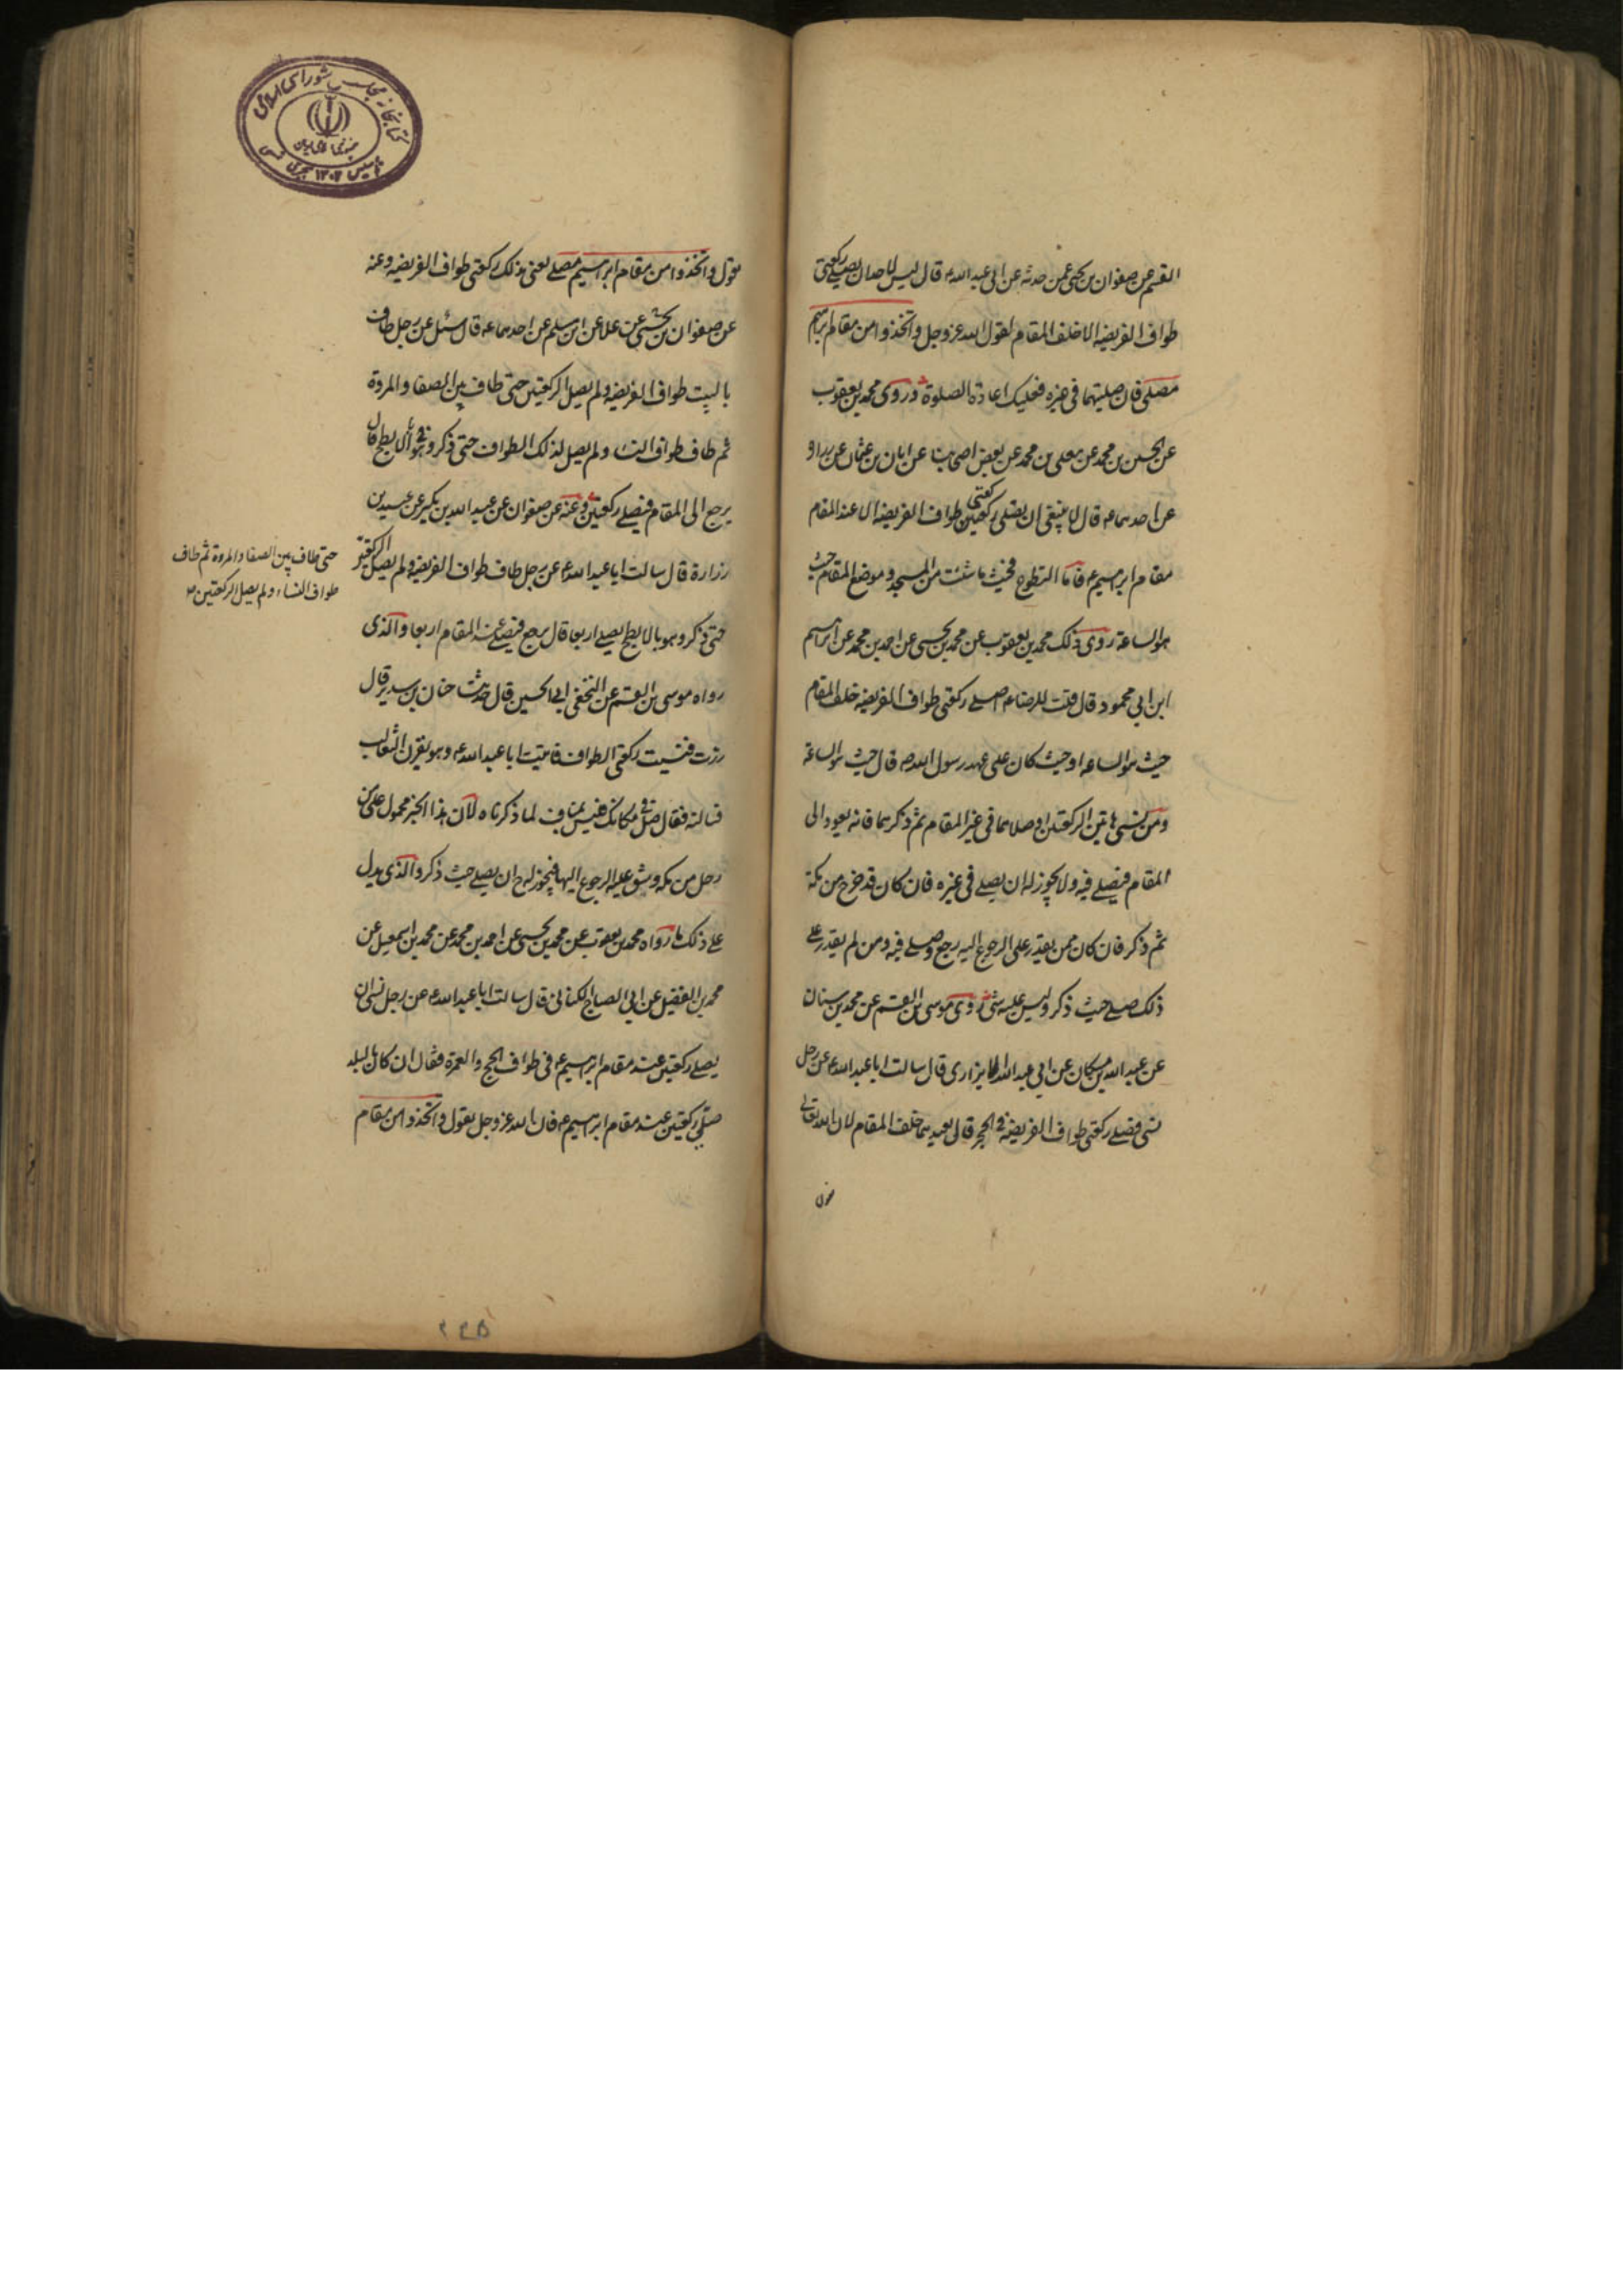 القسم عن صفوان بن يحيى عمن حدثه عن ابى عبد الله ع قال ليس لاحد ان يصلى ركعتى
طواف الفريضه الا خلف المقام لقول الله عز وجل واتخذوا من مقام ابرهيم
مصلى فان صليتهما فى غيره فعليك اعادة الصلوة وروى محمد بن يعقوب
عن الحسين بن محمد عن معلى بن محمد عن بعض اصحابنا عن ابان بن عثمان عن زراره
عن احدهما ع قال لا ينبغى ان يصلى ركعتى طواف الفريضه الا عند المقام
مقام ابرهيم ع فاما التطوع فحيث ما شئت من المسجد وموضع المقام حيث
هو الساعة روى ذلك محمد بن يعقوب عن محمد بن يحيى عن احمد بن محمد عن ابرهيم
ابن ابي محمود قال قلت للرضا ع اصلى ركعتى طواف الفريضه خلف المقام
حيث هو الساعه او حيث كان على عهد رسول الله ص قال حيث هو الساعة
ومن نسى هاتين الركعتين او صلاهما فى غير المقام ثم ذكرهما فانه يعود الى
المقام فيصلى فيه ولا يجوز له ان يصلى فى غيره فان كان قد خرج من مكة
ثم ذكر فان كان ممن يقدر على الرجوع اليه رجع وصلى فيه ومن لم يقدر على
ذلك صلى حيث ذكر وليس عليه شئ روى موسى بن القسم عن محمد بن سنان
عن عبد الله بن مسكان عن ابي عبد الله الابزارى قال سالت ابا عبد الله ع عن رجل
نسى فصلى ركعتى طواف الفريضه فى الحجر قال يعيدهما خلف المقام لان الله تعالى
يقول
يقول واتخذوا من مقام ابرهيم مصلى يعنى بذلك ركعتى طواف الفريضه وعنه
عن صفوان بن يحيى عن علا عن ابن مسلم عن احدهما ع قال سئل عن رجل طاف
بالبيت طواف الفريضه ولم يصل الركعتين حتى طاف بين الصفا والمروة
ثم طاف طواف النساء ولم يصل لذلك الطواف حتى ذكر وهو بالابطح قال
يرجع الى المقام فيصلى ركعتين وعنه عن صفوان عن عبد الله بن بكير عن عبيد بن
زرارة قال سالت ابا عبد الله ع عن رجل طاف طواف الفريضه ولم يصل الركعتين
حتى طاف بين الصفا والمروة ثم طاف
طواف النساء ولم يصل الركعتين
حتى ذكر وهو بالابطح يصلى اربعا قال يرجع فيصلى عند المقام اربعا والذى
رواه موسى بن القسم عن النخعى ابى الحسين قال حدثنا حنان بن سدير قال
زرت فنسيت ركعتى الطواف فاتيت ابا عبد الله ع وهو بقرن الثعالب
فسالته فقال صل فى مكانك فليس بمناف لما ذكرناه لان هذا الخبر محمول على من
رحل من مكه وشق عليه الرجوع اليها فيجوز له ح ان يصلى حيث ذكر والذى يدل
على ذلك ما رواه محمد بن يعقوب عن محمد بن يحيى عن احمد بن محمد عن محمد بن اسمعيل عن
محمد بن الفضيل عن ابى الصباح الكنانى قال سالت ابا عبد الله ع عن رجل نسى ان
يصلى ركعتين عند مقام ابرهيم ع فى طواف الحج والعمرة فقال ان كان بالبلد
صلى ركعتين عند مقام ابرهيم ع فان الله عز وجل يقول واتخذوا من مقام
كتابخانه مجلس شوراى اسلامى
تاسيس ١٣٠٢ هجرى شمسى